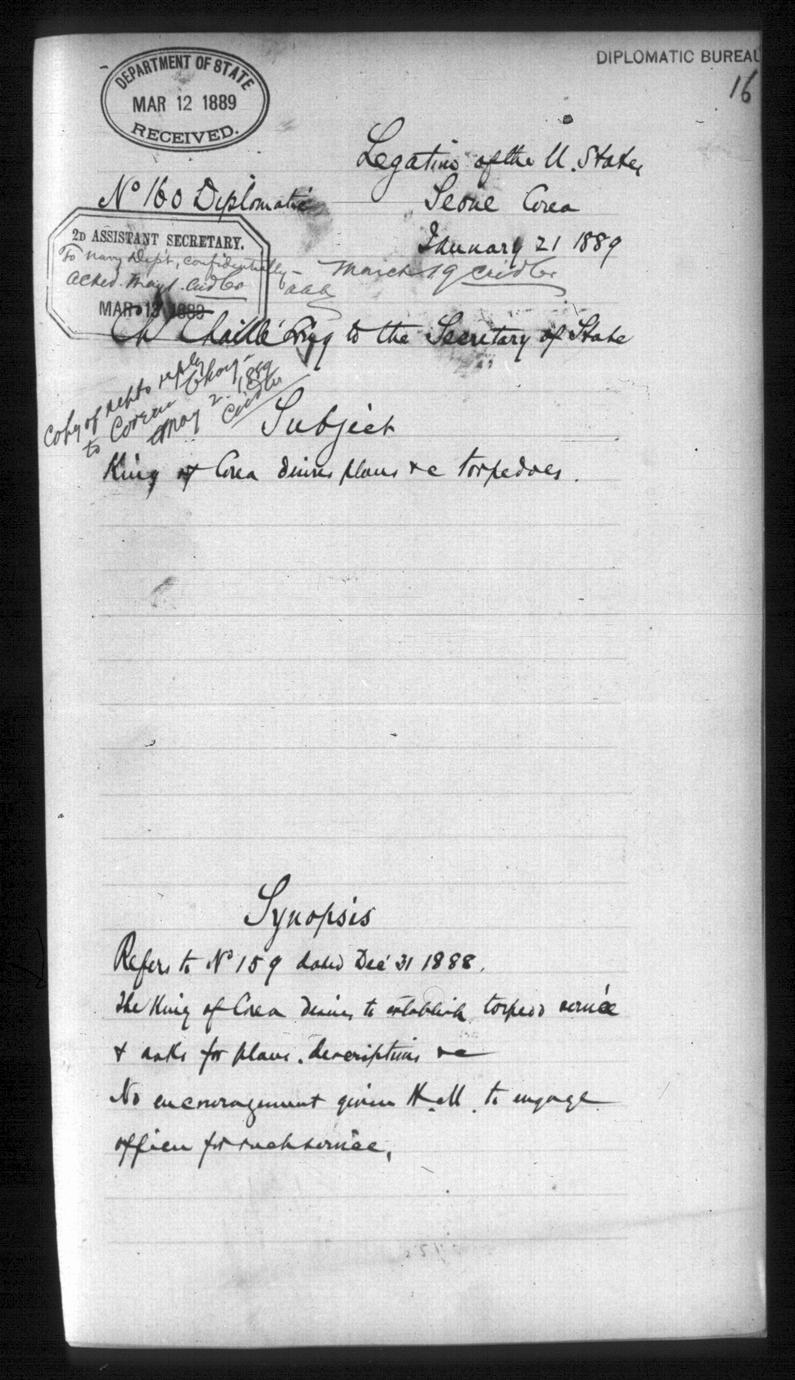 DIPLOMATIC BUREAU
16
DEPARTMENT OF STATE
MAR 12 1889
RECEIVED.
Legation of the U. States
No 160 Diplomatic
Seoul Corea
January 21 1889
2D ASSISTANT SECRETARY.
To Navy Dept, confidentially - March 19 Cridler
Acked. May 1. Cridler
aaa
MAR 13 1889
Ch Chaillé Long to the Secretary of State
Copy of reply
to Corean
May 2. 1889
Cridler
Subject
King of Corea desires plans &c torpedoes.
Synopsis
Refers to No 159 dated Dec 31 1888.
The King of Corea desires to establish torpedo service
& asks for plans, descriptions &c
No encouragement given H.M. to engage
officer for such service.